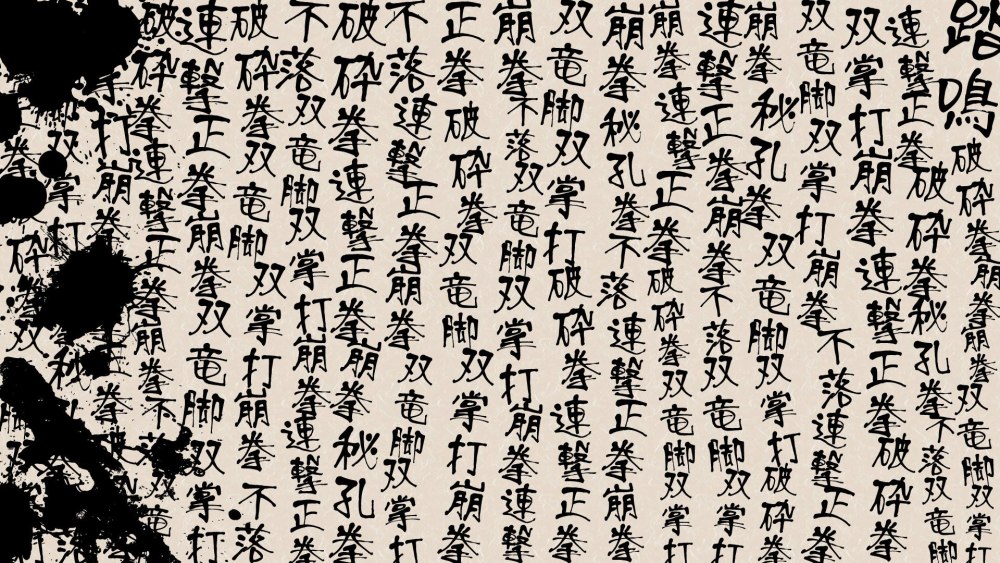 踏鳴破砕拳崩拳崩拳双竜脚双掌打
連撃正拳破砕拳秘孔拳不落双竜脚
双掌打崩拳連撃正拳破砕拳
双竜脚双掌打崩拳不落連撃正拳
崩拳秘孔拳双竜脚双掌打破砕拳
連撃正拳崩拳不落双竜脚双掌打
崩拳連撃正拳破砕拳双竜脚双掌打
崩拳秘孔拳不落連撃正拳崩拳
双竜脚双掌打破砕拳連撃正拳
崩拳不落双竜脚双掌打崩拳連撃
正拳破砕拳双竜脚双掌打崩拳
不落連撃正拳崩拳双竜脚双掌打
破砕拳連撃正拳崩拳秘孔拳
不落双竜脚双掌打崩拳連撃正拳
破砕拳双竜脚双掌打崩拳不落
連撃正拳崩拳双竜脚双掌打
破砕拳連撃正拳崩拳不落双竜
掌打崩拳正拳破
双掌打秘
拳砕拳双